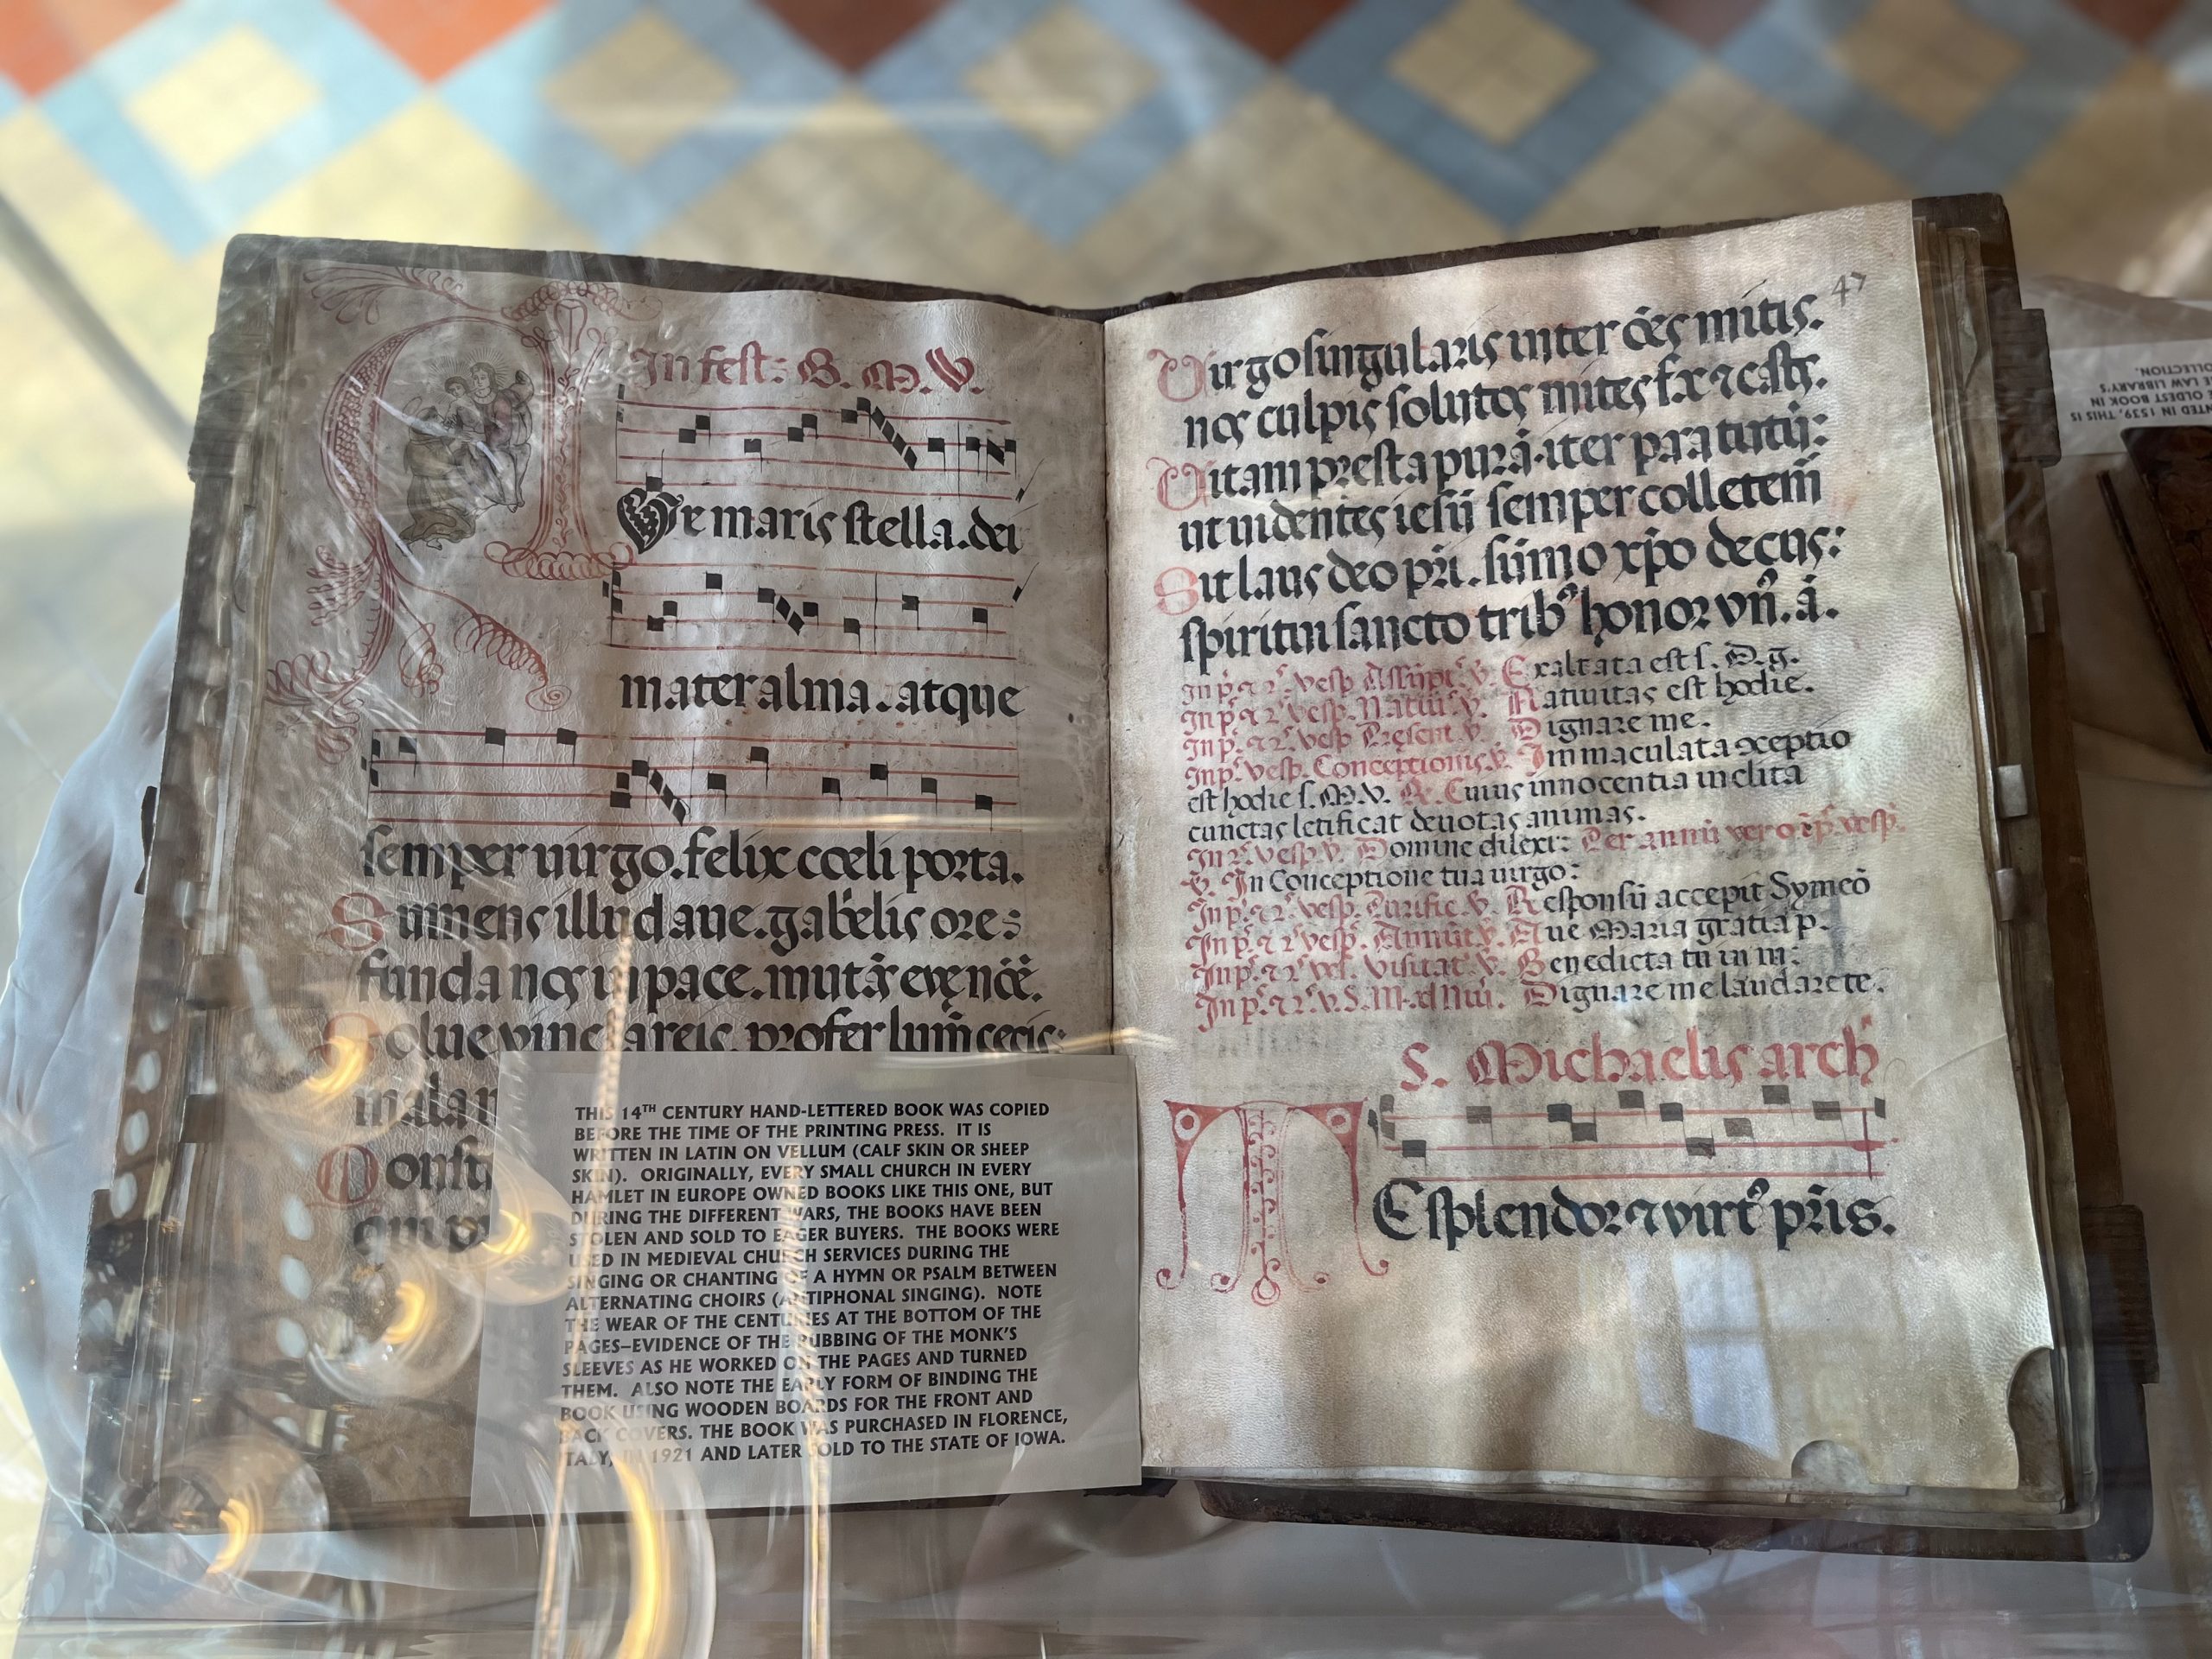 In fest: B. M. V.
Ve maris stella. dei
mater alma. atque
semper uirgo. felix cœli porta.
Sumens illud aue. gab̃elis ore:
funda nos in pace. mutãs eve nõẽ.
Solue vincla reis. profer lum̃ cecis:
mala n
Monst
om pr
THIS 14TH CENTURY HAND-LETTERED BOOK WAS COPIED
BEFORE THE TIME OF THE PRINTING PRESS. IT IS
WRITTEN IN LATIN ON VELLUM (CALF SKIN OR SHEEP
SKIN). ORIGINALLY, EVERY SMALL CHURCH IN EVERY
HAMLET IN EUROPE OWNED BOOKS LIKE THIS ONE, BUT
DURING THE DIFFERENT WARS, THE BOOKS HAVE BEEN
STOLEN AND SOLD TO EAGER BUYERS. THE BOOKS WERE
USED IN MEDIEVAL CHURCH SERVICES DURING THE
SINGING OR CHANTING OF A HYMN OR PSALM BETWEEN
ALTERNATING CHOIRS (ANTIPHONAL SINGING). NOTE
THE WEAR OF THE CENTURIES AT THE BOTTOM OF THE
PAGES–EVIDENCE OF THE RUBBING OF THE MONK'S
SLEEVES AS HE WORKED ON THE PAGES AND TURNED
THEM. ALSO NOTE THE EARLY FORM OF BINDING THE
BOOK USING WOODEN BOARDS FOR THE FRONT AND
BACK COVERS. THE BOOK WAS PURCHASED IN FLORENCE,
ITALY, IN 1921 AND LATER SOLD TO THE STATE OF IOWA.
47
Uirgo singularis inter ões mitis.
nos culpis solutos mites fx ⁊ casts.
Uitam presta purã. iter para tutũ:
ut uidentes iesũ semper colletem̃
Sit laus deo pr̃i. sũmo xp̃o decus:
spiritui sancto tribꝰ honor vn̉. ã.
In p.̃ ⁊ 2.̃ vesp. Assũpt. ℣. Exaltata est s. D. g.
In p.̃ ⁊ 2.̃ vesp. Natiui. ℣. Natiuitas est hodie.
In p.̃ ⁊ 2.̃ vesp. Present. ℣. Dignare me.
In p.̃ vesp. Conceptionis ℣. Immaculata ɔceptio
est hodie s. M. V. ℟. Cuius innocentia inclita
cunctas letificat deuotas animas.
In 2.̃ vesp. ℣. Domine dilexi: Per annũ vero ĩ p.̃ vesp.
℣. In Conceptione tua uirgo:
In p.̃ ⁊ 2.̃ vesp. Purific. ℣. Responsũ accepit Symeõ
In p.̃ ⁊ 2.̃ vesp. Annũt. ℣. Aue Maria gratia p.
In p.̃ ⁊ 2.̃ ves. Visitat. ℣. Benedicta tu in m:
In p.̃ ⁊ 2.̃ v. S. M. ad Niu. Dignare me laudare te.
S. Michaelis arch
TE splendor ⁊ virtꝰ pr̃is.
NTED IN 1539, THIS IS
E OLDEST BOOK IN
E LAW LIBRARY'S
OLLECTION.